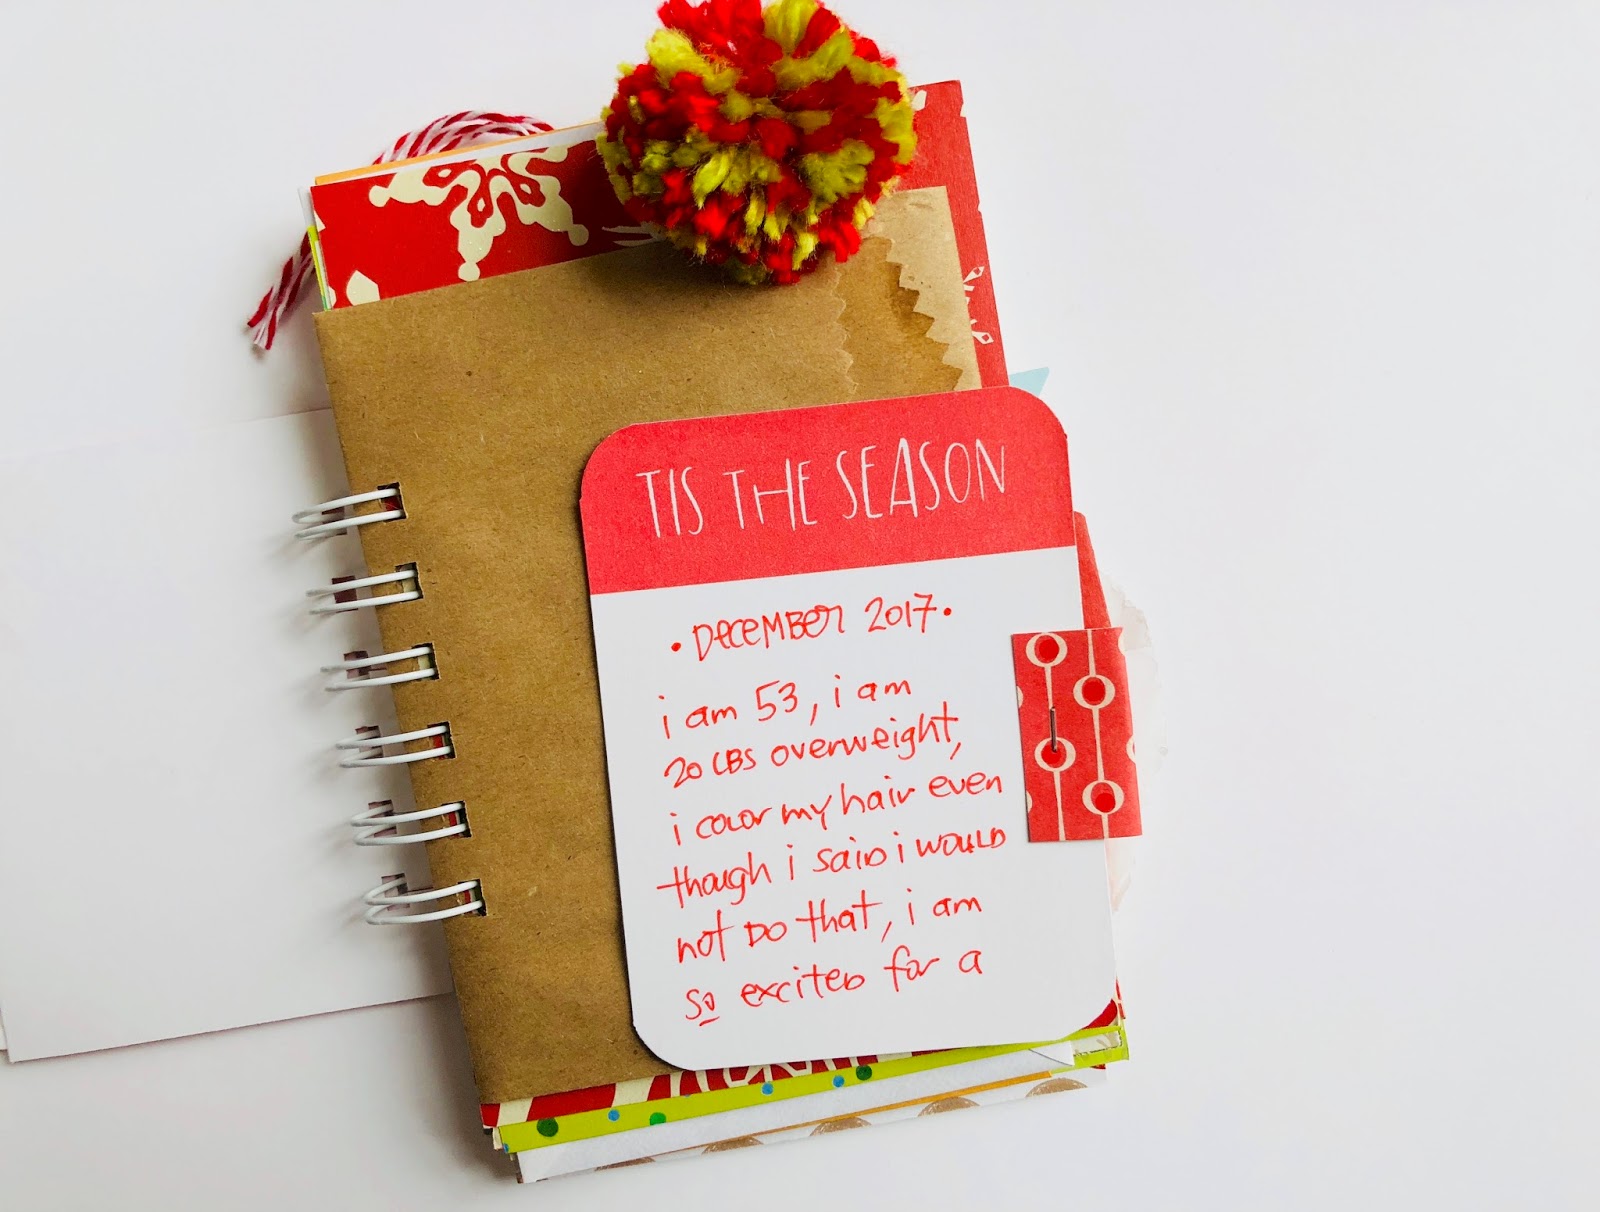 TIS THE SEASON
• DECEMBER 2017 •
i am 53, i am
20 LBS overweight,
i color my hair even
though i said i would
not do that, i am
so excited for a